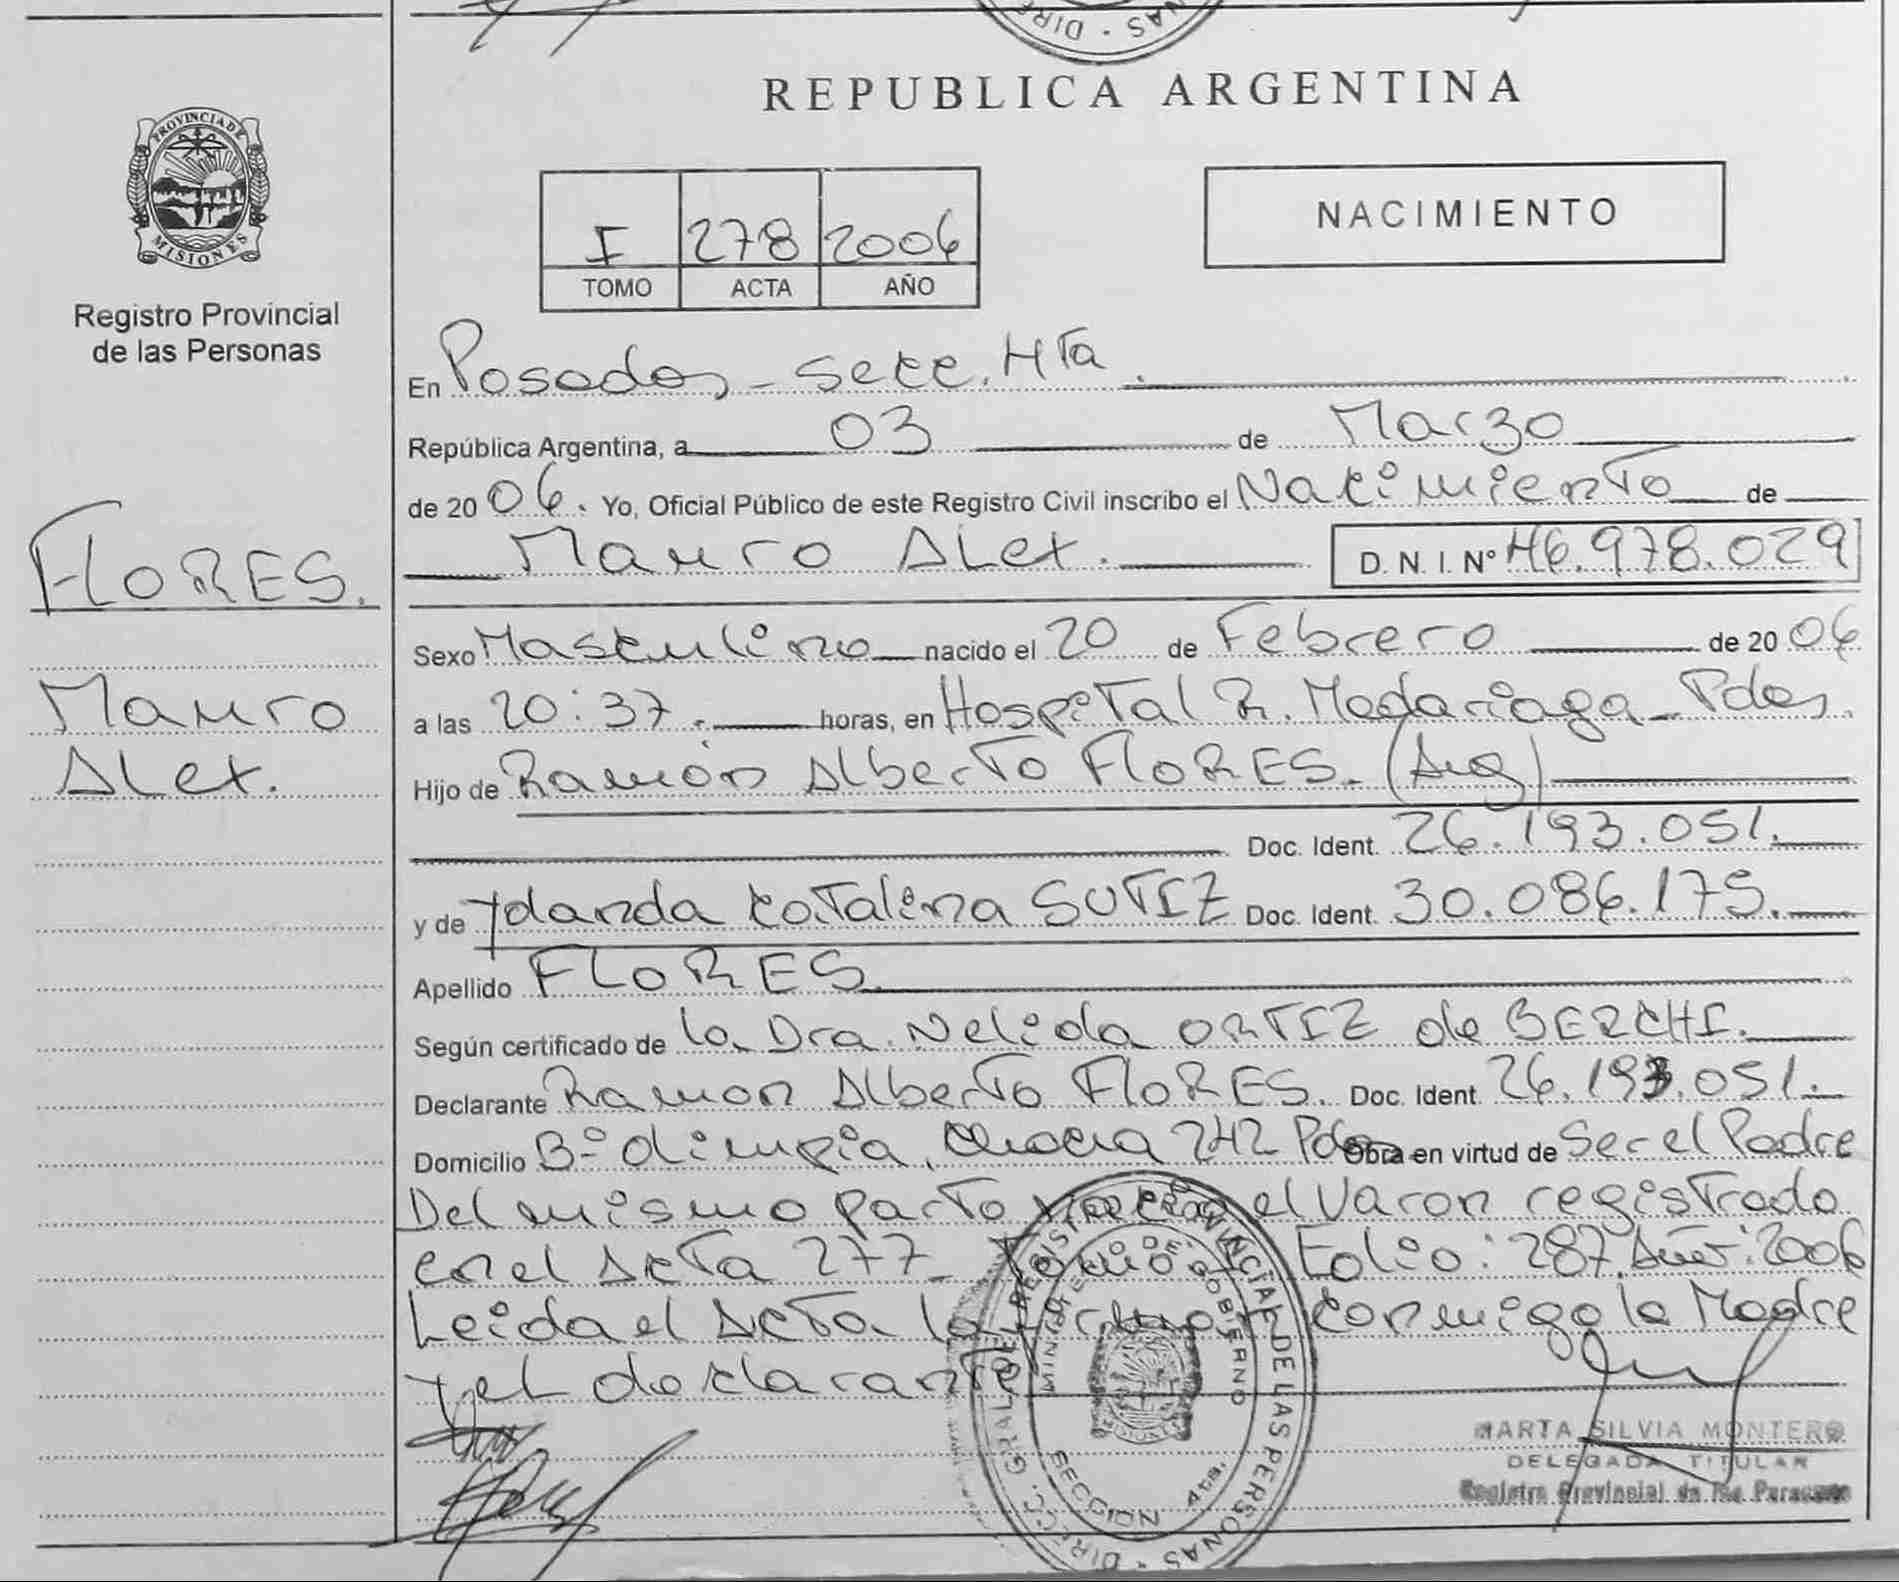 DIRE · NAS ·
REPUBLICA ARGENTINA
PROVINCIA DE
MISIONES
Registro Provincial
de las Personas
NACIMIENTO
I 278 2006
TOMO ACTA AÑO
En Posadas - Secc. Hta.
República Argentina, a 03 de Marzo
de 20 06. Yo, Oficial Público de este Registro Civil inscribo el Nacimiento de
Mauro Alex. D. N. I. Nº 46.978.029
FLORES.
Mauro
Alex.
Sexo Masculino nacido el 20 de Febrero de 20 06
a las 20:37 - horas, en Hospital R. Madariaga - Pdas.
Hijo de Ramón Alberto FLORES. (Arg)
Doc. Ident. 26.193.051.
y de Yolanda Catalina SUTIZ Doc. Ident. 30.086.175.
Apellido FLORES.
Según certificado de la Dra. Nelida ORTIZ de BERCHI.
Declarante Ramon Alberto FLORES. Doc. Ident 26.193.051.
Domicilio Bº Olimpia, 242 Pdas Obra en virtud de Ser el Padre
Del mismo parto nació el Varon registrado
en el Acta 277 - Tomo I Folio: 287. Año: 2006
Leida el Acta la firman conmigo la Madre
y el declarante
DIRECC. GRAL. DE REGISTRO PROVINCIAL DE LAS PERSONAS ·
MINISTERIO DE GOBIERNO
SECCION
MARTA SILVIA MONTERO
DELEGADA TITULAR
Registro Provincial de las Personas